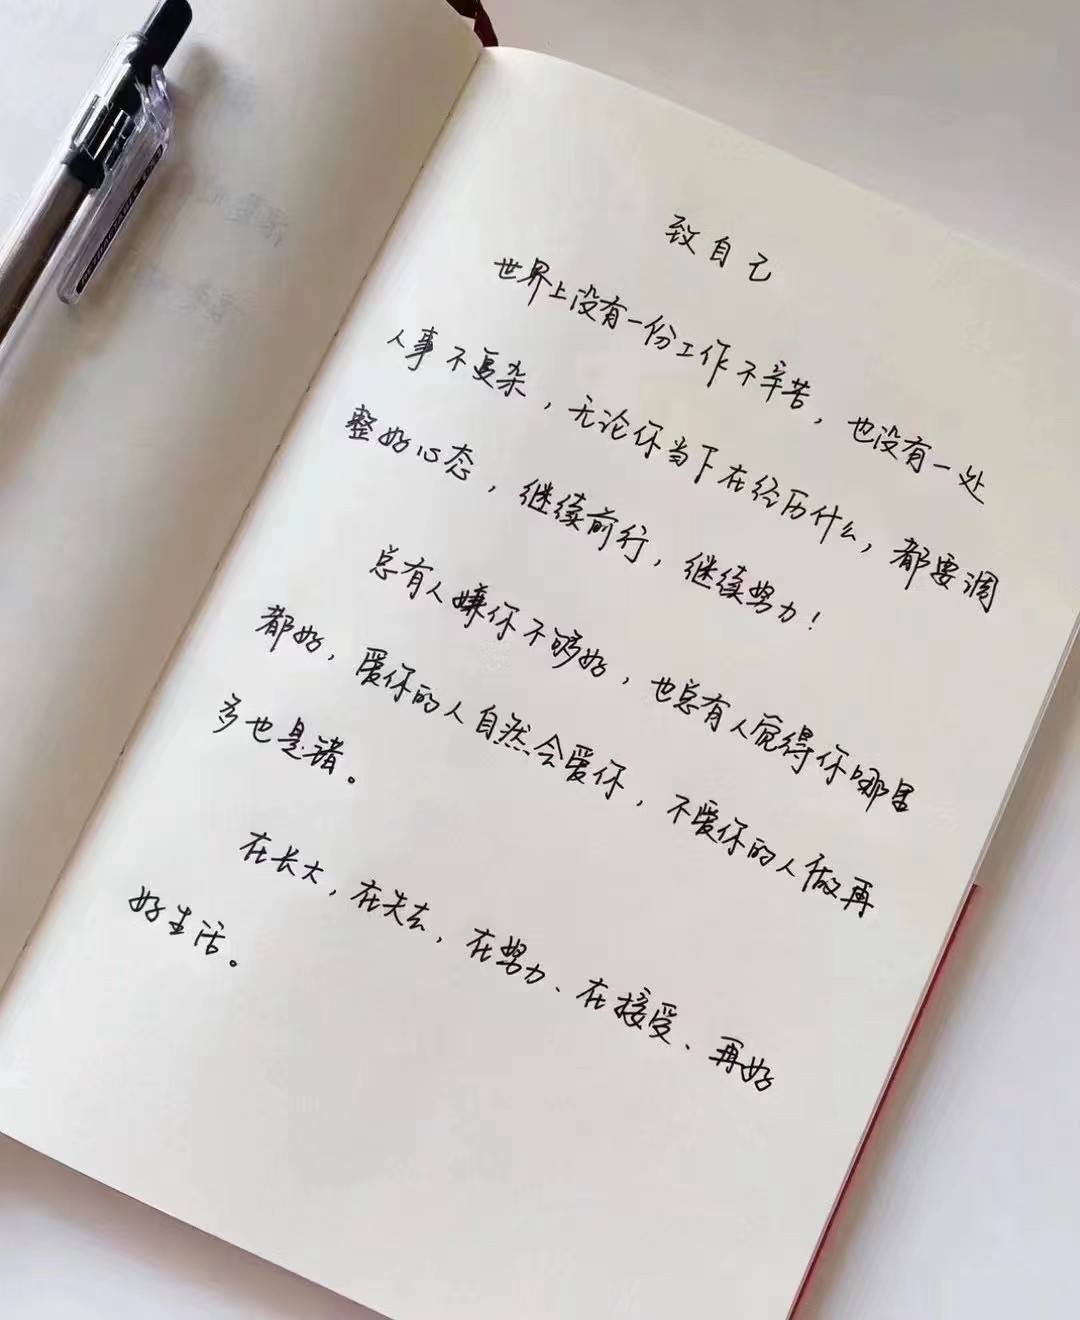 致自己
世界上没有一份工作不辛苦，也没有一处
人事不复杂，无论你当下在经历什么，都要调
整好心态，继续前行，继续努力！
总有人嫌你不够好，也总有人觉得你哪里
都好，爱你的人自然会爱你，不爱你的人做再
多也是错。
在长大，在失去，在努力、在接受、再好
好生活。
RETRACTABLE